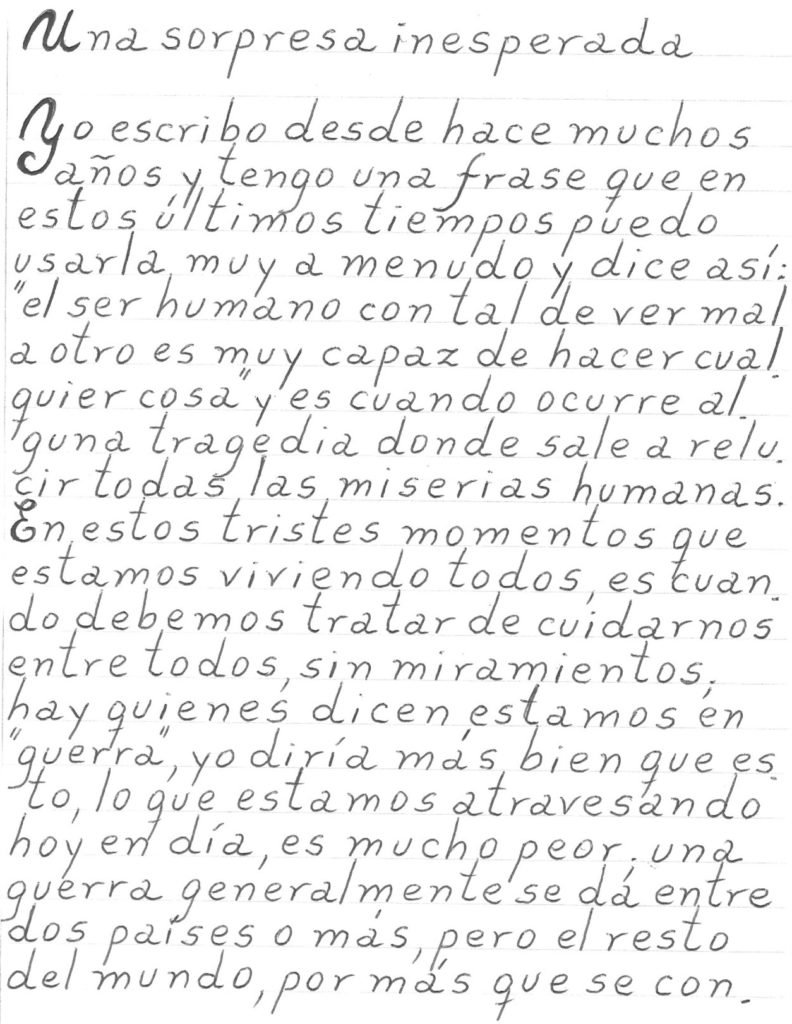 Una sorpresa inesperada
Yo escribo desde hace muchos
años y tengo una frase que en
estos últimos tiempos puedo
usarla muy a menudo y dice así:
"el ser humano con tal de ver mal
a otro es muy capaz de hacer cual-
quier cosa" y es cuando ocurre al-
guna tragedia donde sale a relu-
cir todas las miserias humanas.
En estos tristes momentos que
estamos viviendo todos, es cuan-
do debemos tratar de cuidarnos
entre todos, sin miramientos;
hay quienes dicen estamos en
"guerra", yo diría más bien que es-
to, lo que estamos atravesando
hoy en día, es mucho peor; una
guerra generalmente se dá entre
dos países o más, pero el resto
del mundo, por más que se con-